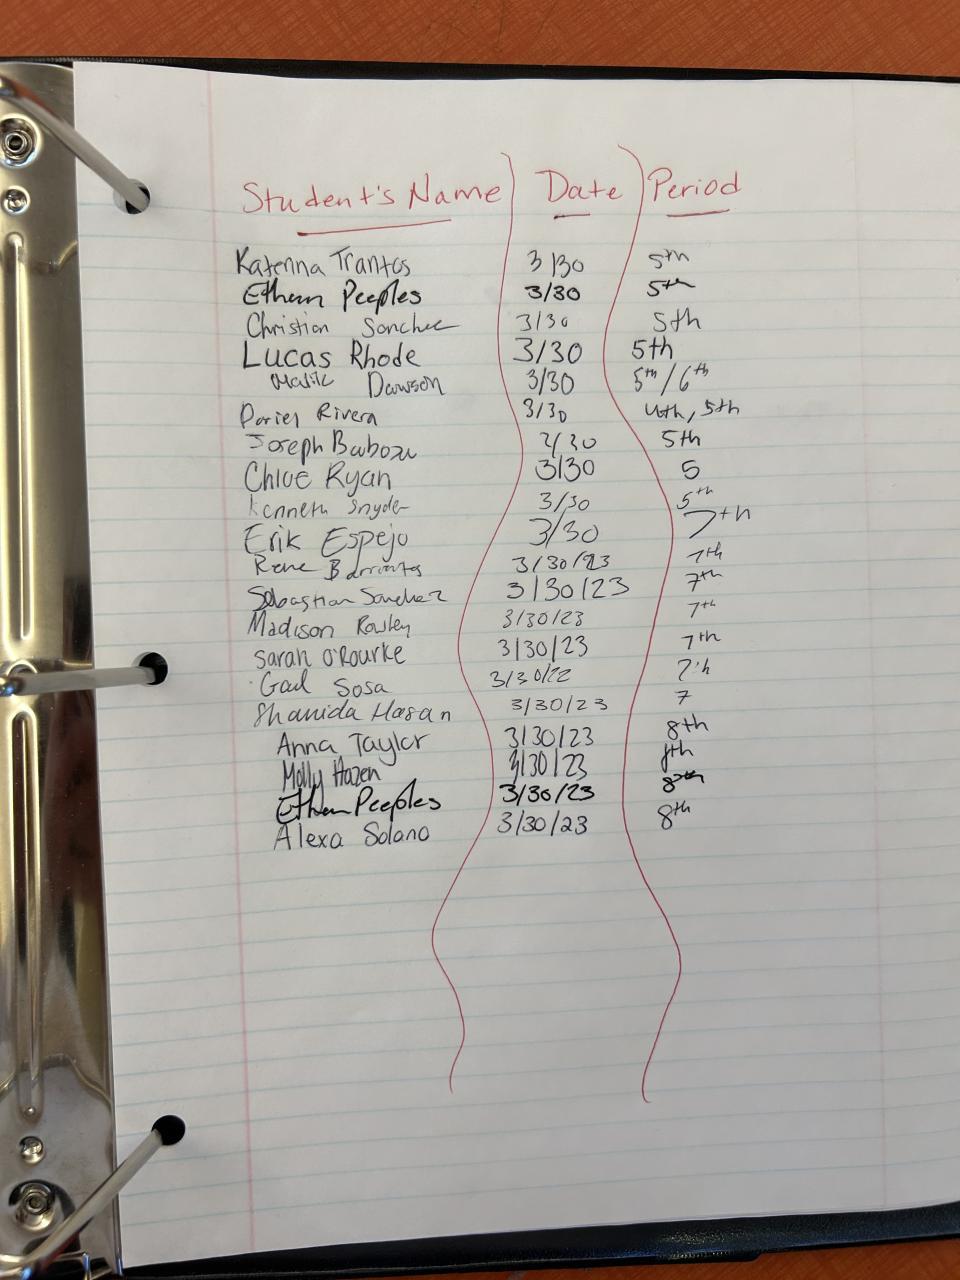 Student's Name Date Period
Katerina Trantos 3/30 5th
Ethan Peeples 3/30 5th
Christian Sanchez 3/30 5th
Lucas Rhode 3/30 5th
Malik Dawson 3/30 5th/6th
Rivera 3/30 4th, 5th
Joseph 3/30 5th
Chloe Ryan 3/30 5
Kenneth Snyder 3/30 5th
Erik Espejo 3/30 7th
Rene Barrientos 3/30/23 7th
Sebastian Sanchez 3/30/23 7th
Madison Rowley 3/30/23 7th
Sarah O'Rourke 3/30/23 7th
Sosa 3/30/22 7th
Shanida Hasan 3/30/23 7
Anna Taylor 3/30/23 8th
Molly Hazen 3/30/23 8th
Ethan Peeples 3/30/23 8th
Alexa Solano 3/30/23 8th